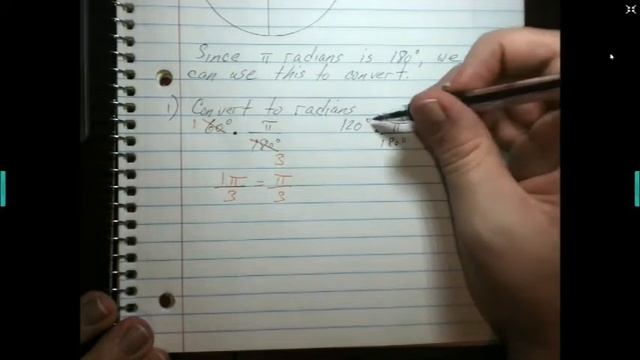 Since π radians is 180°, we
can use this to convert.
1) Convert to radians
1 60° · π/180° 3
120° · π/180°
1π/3 = π/3